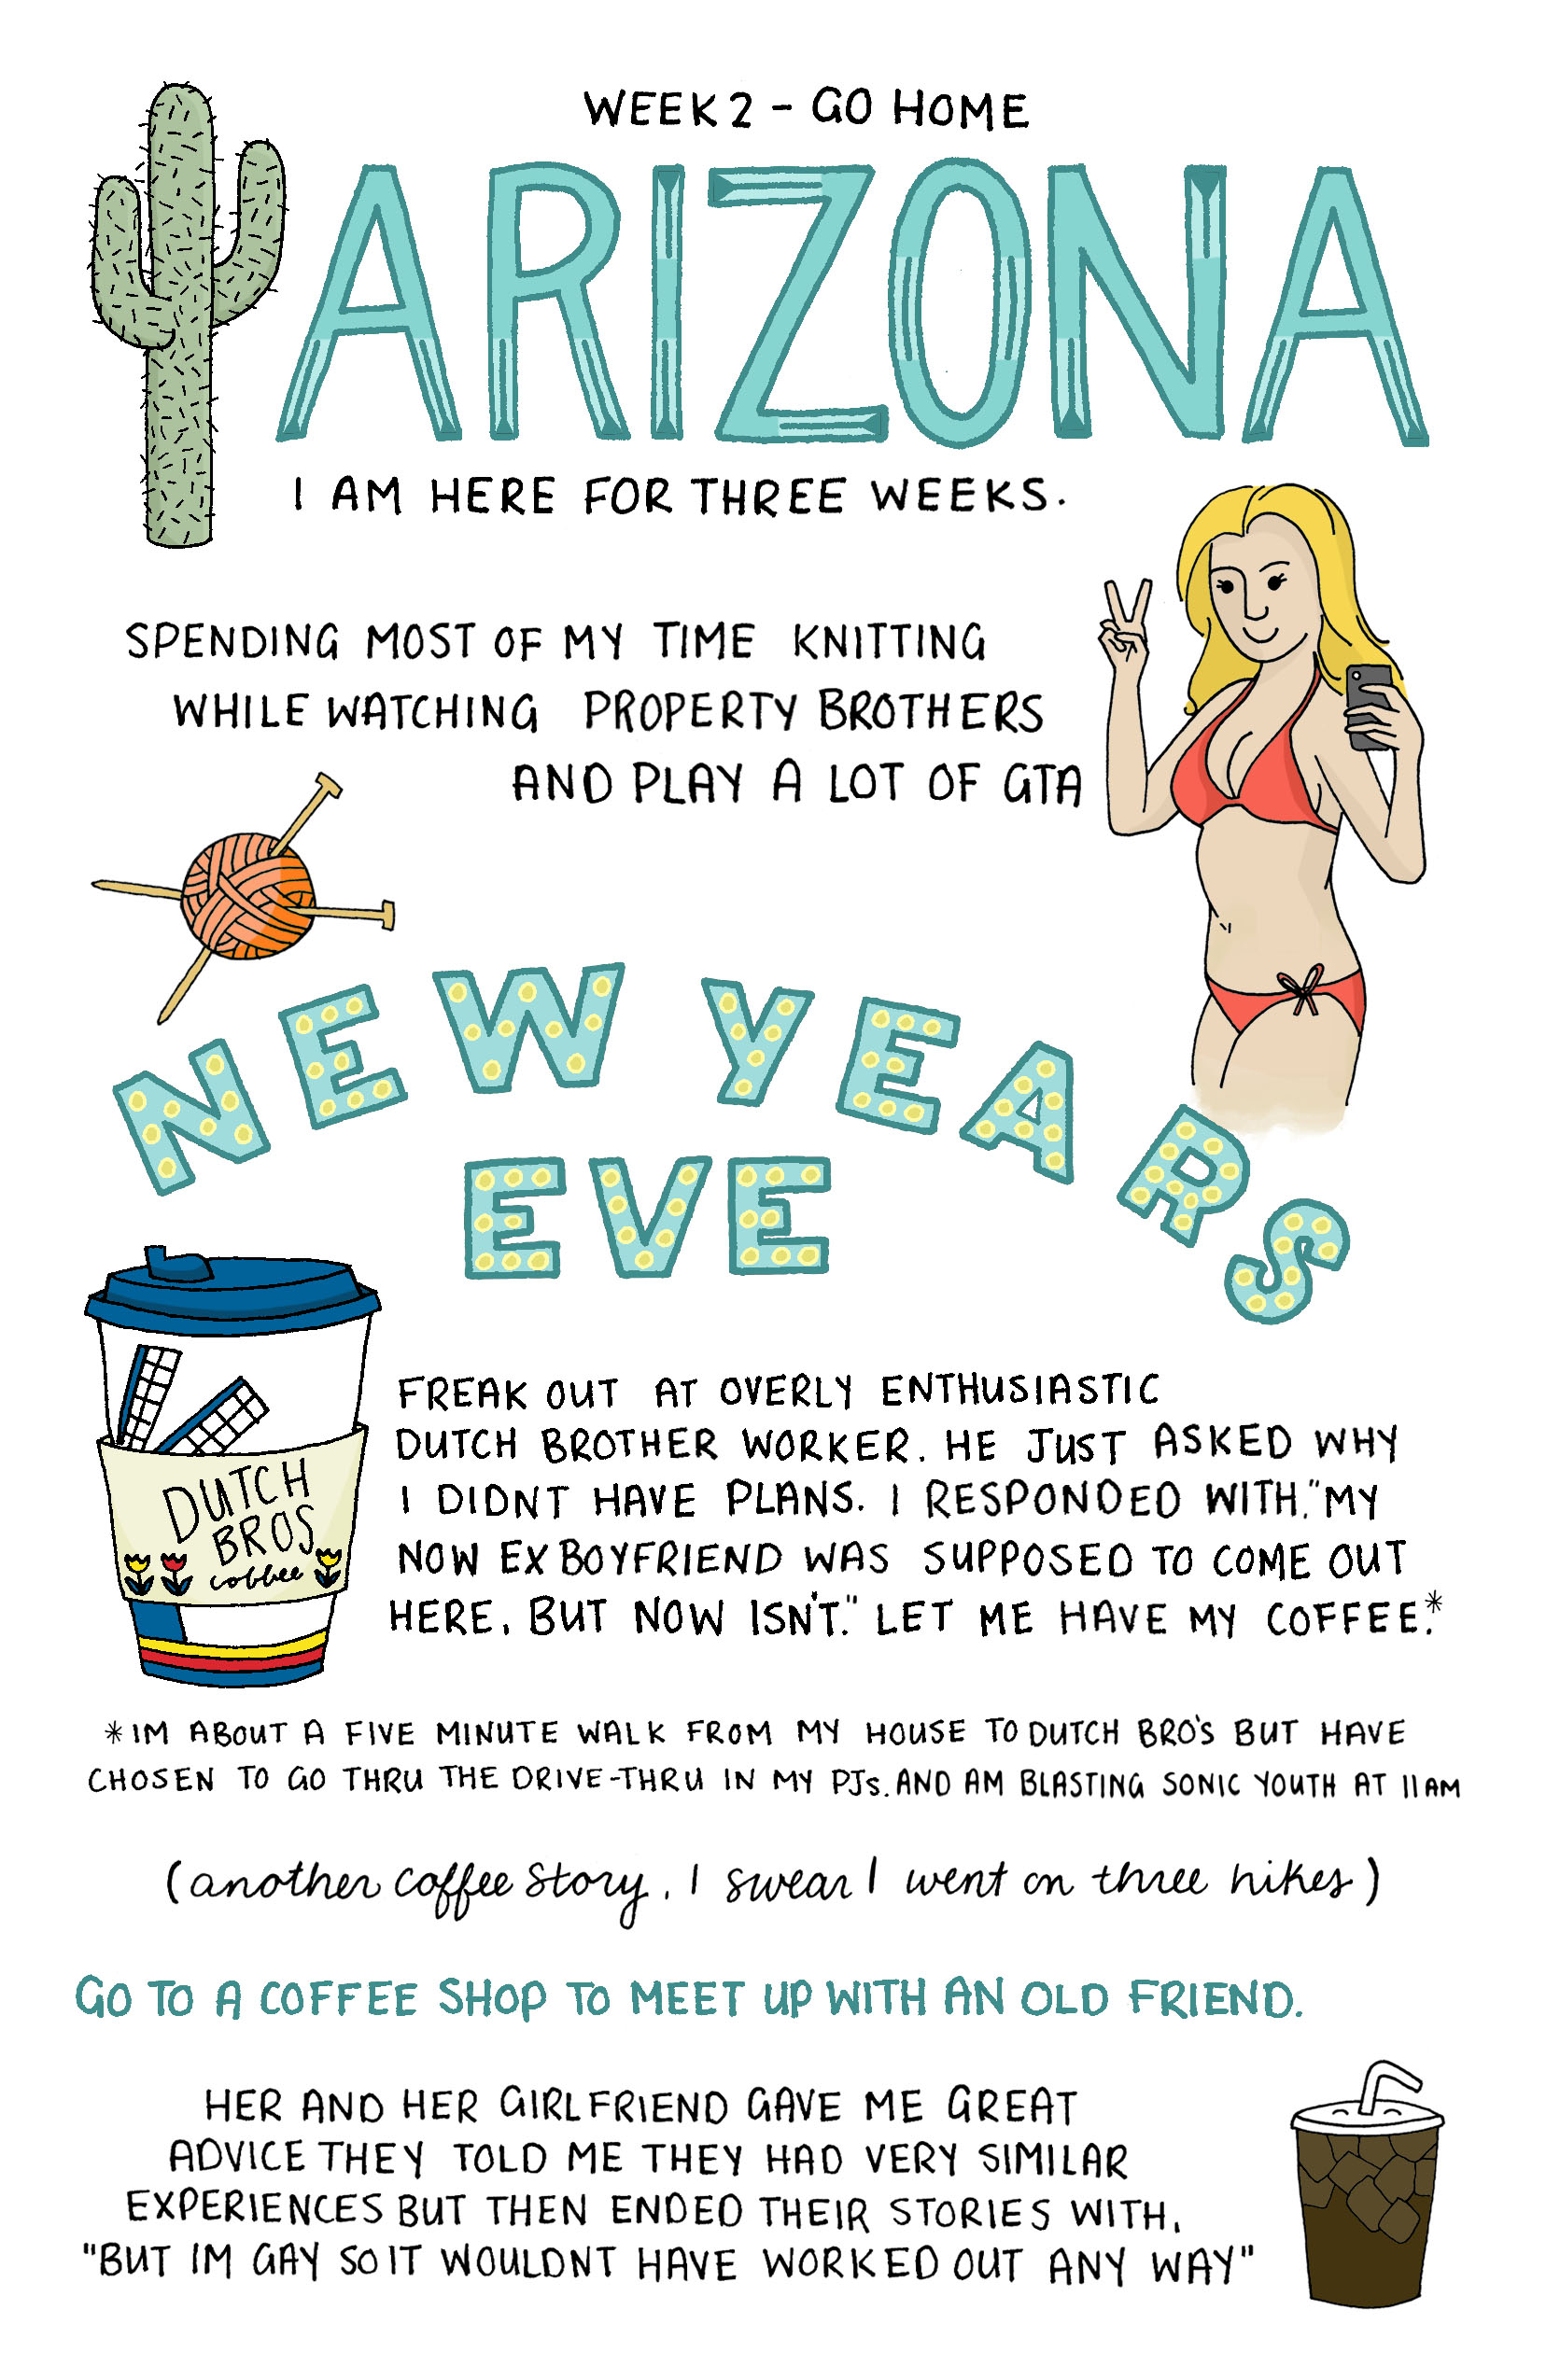 WEEK 2 - GO HOME
ARIZONA
I AM HERE FOR THREE WEEKS.
SPENDING MOST OF MY TIME KNITTING
WHILE WATCHING PROPERTY BROTHERS
AND PLAY A LOT OF GTA
NEW YEARS
EVE
DUTCH
BROS
coffee
FREAK OUT AT OVERLY ENTHUSIASTIC
DUTCH BROTHER WORKER. HE JUST ASKED WHY
I DIDNT HAVE PLANS. I RESPONDED WITH, "MY
NOW EX BOYFRIEND WAS SUPPOSED TO COME OUT
HERE, BUT NOW ISN'T." LET ME HAVE MY COFFEE.*
*IM ABOUT A FIVE MINUTE WALK FROM MY HOUSE TO DUTCH BRO'S BUT HAVE
CHOSEN TO GO THRU THE DRIVE-THRU IN MY PJs. AND AM BLASTING SONIC YOUTH AT 11 AM
(another coffee story, I swear I went on three hikes)
GO TO A COFFEE SHOP TO MEET UP WITH AN OLD FRIEND.
HER AND HER GIRLFRIEND GAVE ME GREAT
ADVICE THEY TOLD ME THEY HAD VERY SIMILAR
EXPERIENCES BUT THEN ENDED THEIR STORIES WITH,
"BUT IM GAY SO IT WOULDNT HAVE WORKED OUT ANY WAY"